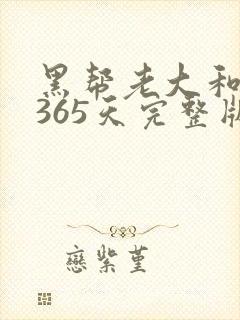 黑帮老大和
365天完整版
戀紫堇